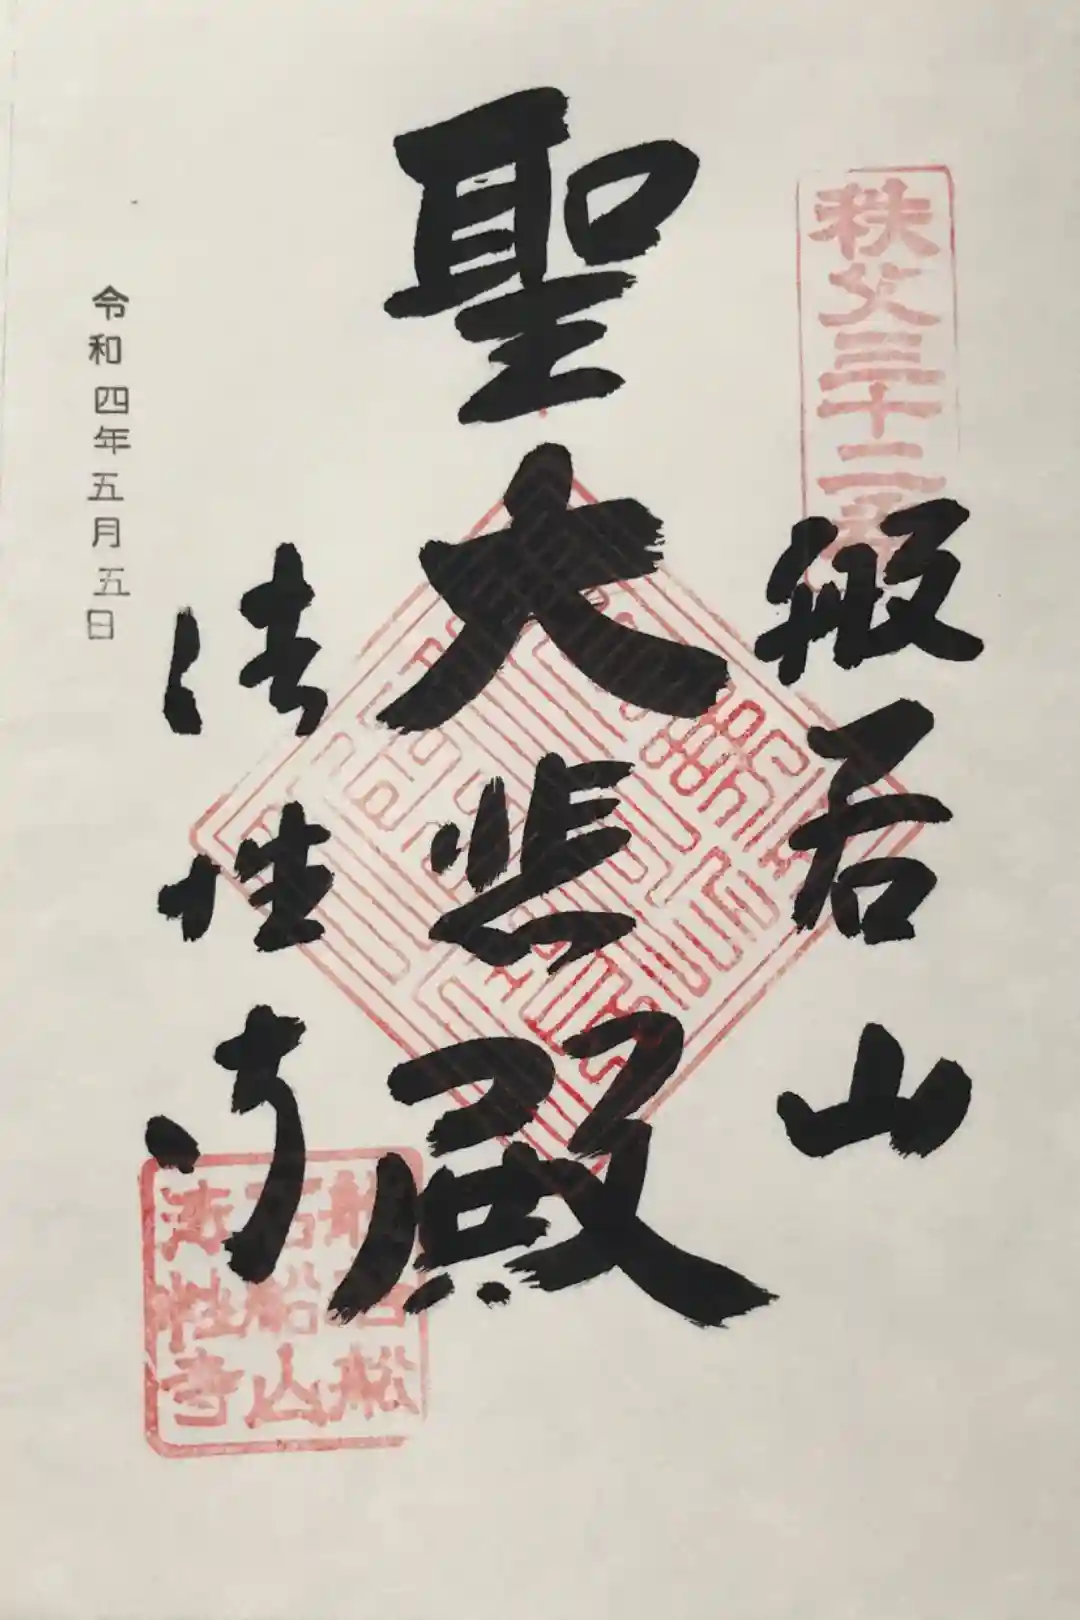 秩父三十二番
般若山
聖大悲殿
法性寺
令和四年五月五日
石船山
法性寺